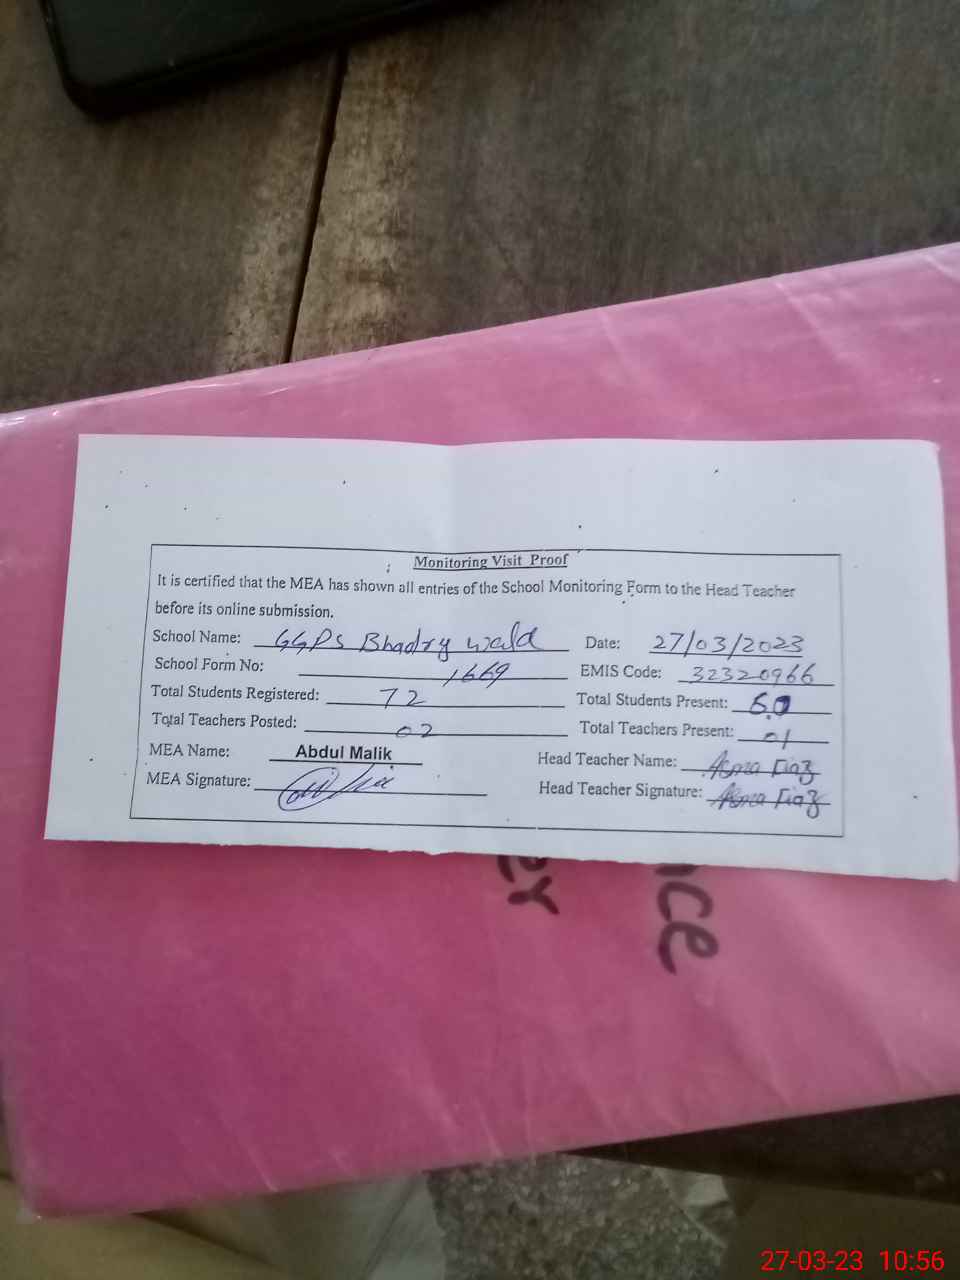 Monitoring Visit Proof
It is certified that the MEA has shown all entries of the School Monitoring Form to the Head Teacher
before its online submission.
School Name: GGPS Bhadry wald Date: 27/03/2023
School Form No: 1669 EMIS Code: 32320966
Total Students Registered: 72 Total Students Present: 60
Total Teachers Posted: 02 Total Teachers Present: 01
MEA Name: Abdul Malik Head Teacher Name: Asma Fiaz
MEA Signature: Head Teacher Signature: Asma Fiaz
27-03-23 10:56